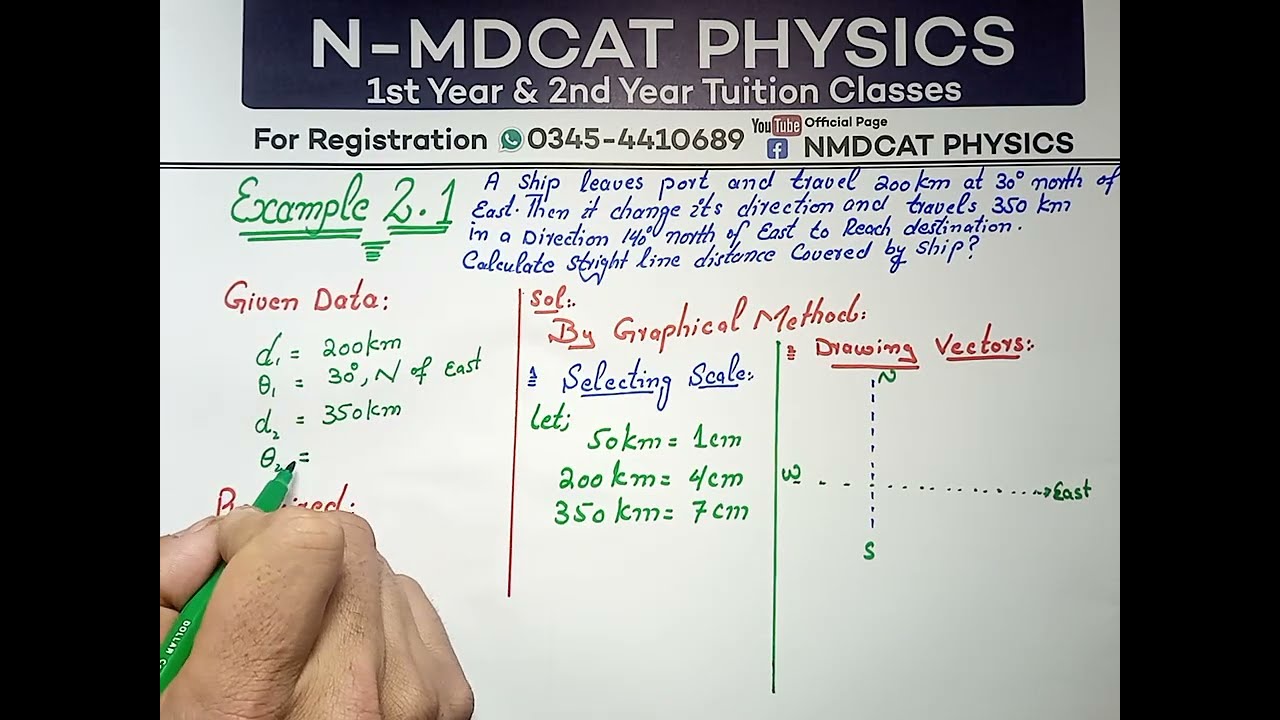 N-MDCAT PHYSICS
1st Year & 2nd Year Tuition Classes
For Registration 0345-4410689
YouTube Official Page
NMDCAT PHYSICS
Example 2.1
A ship leaves port and travel 200km at 30° north of
East. Then it change its direction and travels 350 km
in a Direction 140° north of East to Reach destination.
Calculate stright line distance Covered by ship?
Given Data:
d₁ = 200km
θ₁ = 30°, N of East
d₂ = 350km
θ₂ =
Sol:.
By Graphical Method:
1 Selecting Scale:
let;
50km = 1cm
200km = 4cm
350km = 7cm
2 Drawing Vectors:
N
W
East
S
DOLLAR